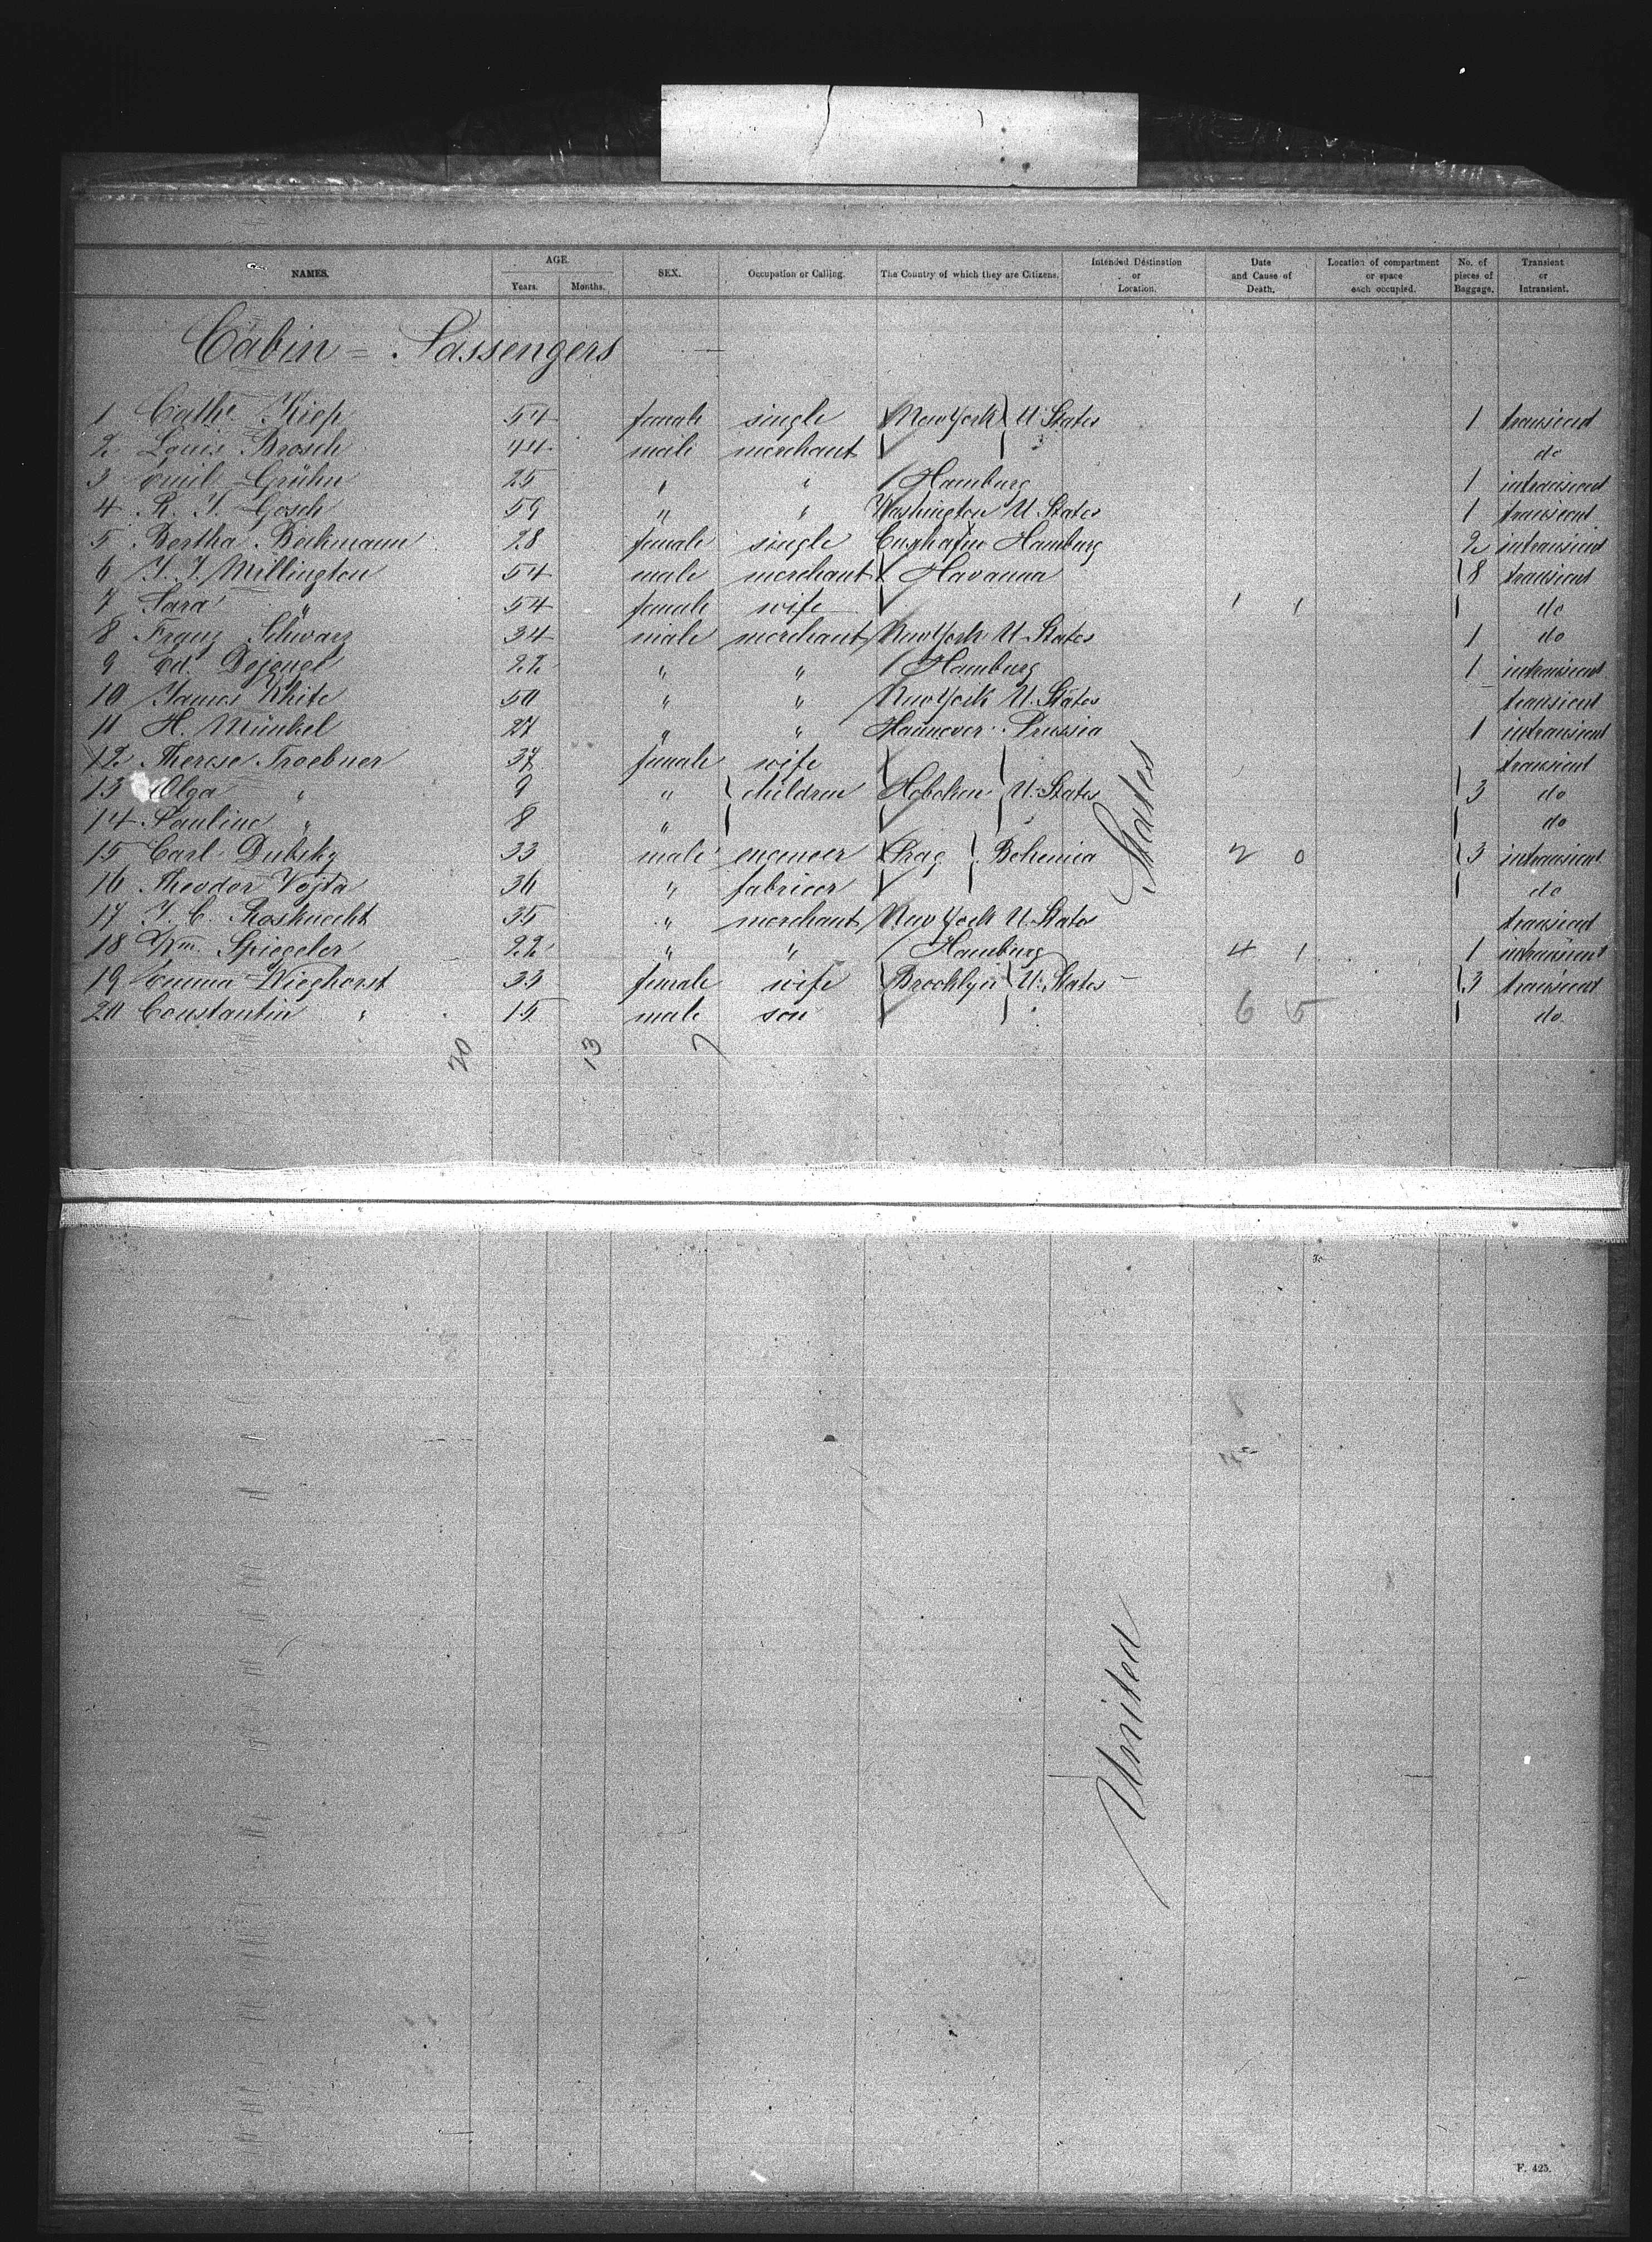 NAMES. AGE. Years. Months. SEX. Occupation or Calling. The Country of which they are Citizens. Intended Destination or Location. Date and Cause of Death. Location of compartment or space each occupied. No. of pieces of Baggage. Transient or Intransient.
Cabin = Passengers
1 Cathe Kiep 54 female single New York U. States 1 transient
2 Louis Brosch 44 male merchant do
3 Emil Grühn 25 " " Hamburg 1 intransient
4 R. T. Gosch 59 " " Washington U. States 1 transient
5 Bertha Böckmann 28 female single Cuxhafen Hamburg 2 intransient
6 T. T. Millington 54 male merchant Havanna 8 transient
7 Sara " 54 female wife 1 1 do
8 Franz Schwarz 34 male merchant New York U. States 1 do
9 Ed. 22 " " Hamburg 1 intransient
10 James White 50 " " New York U. States transient
11 H. Münkel 27 " " Hannover Prussia 1 intransient
12 Therese Troebner 37 female wife transient
13 Olga " 9 " children Hoboken U. States 3 do
14 Pauline " 8 " do
15 Carl Dubsky 33 male Prag Bohemia 2 0 3 intransient
16 Theodor Vojta 36 " fabricer do
17 J. C. Rosknecht 35 " merchant New York U. States transient
18 Wm. Spiegeler 22 " " Hamburg 4 1 1 intransient
19 Emma Wieghorst 33 female wife Brooklyn U. States 3 transient
20 Constantin " 15 male son 6 5 do.
20 13 7
United States
F. 425.